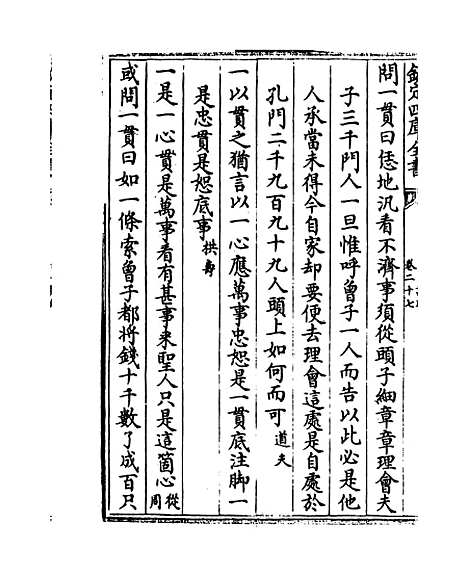 欽定四庫全書
卷二十七
問一貫曰恁地汎看不濟事須從頭子細章章理會夫
子三千門人一旦惟呼曾子一人而告以此必是他
人承當未得今自家却要便去理會這處是自處於
孔門二千九百九十九人頭上如何而可道夫
一以貫之猶言以一心應萬事忠恕是一貫底注脚一
是忠貫是恕底事拱壽
一是一心貫是萬事看有甚事来聖人只是這箇心從周
或問一貫曰如一條索曾子都將錢十千數了成百只